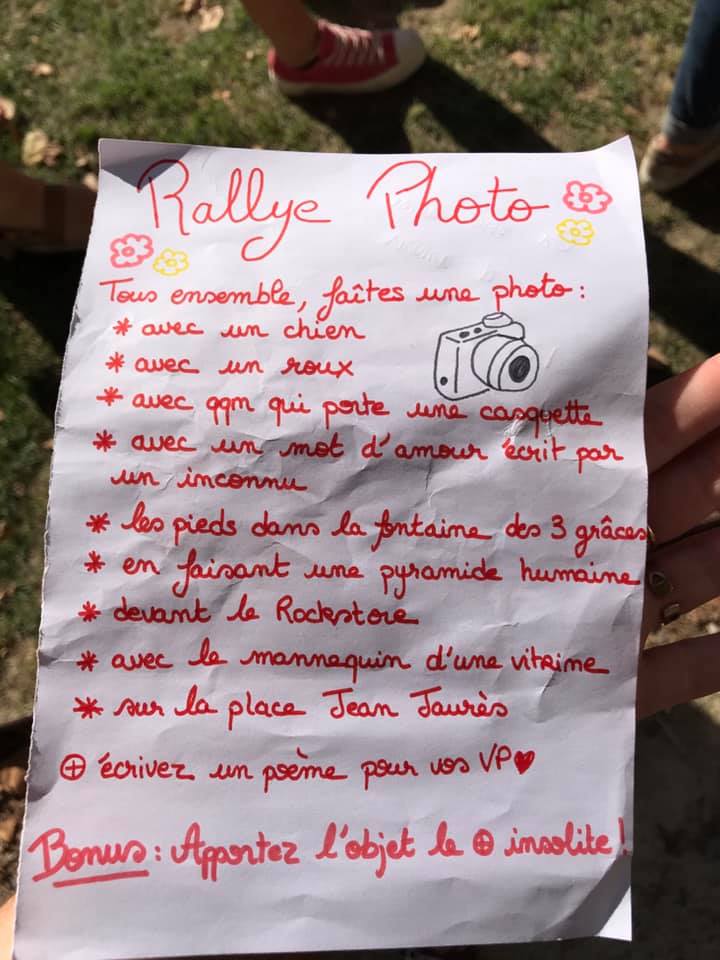 Rallye Photo
Tous ensemble, faîtes une photo :
* avec un chien
* avec un roux
* avec qqm qui porte une casquette
* avec un mot d'amour écrit par
un inconnu
* les pieds dans la fontaine des 3 grâces
* en faisant une pyramide humaine
* devant le Rockstore
* avec le mannequin d'une vitrine
* sur la place Jean Jaurès
⊕ écrivez un poème pour vos VP♥
Bonus : Apportez l'objet le ⊕ insolite !